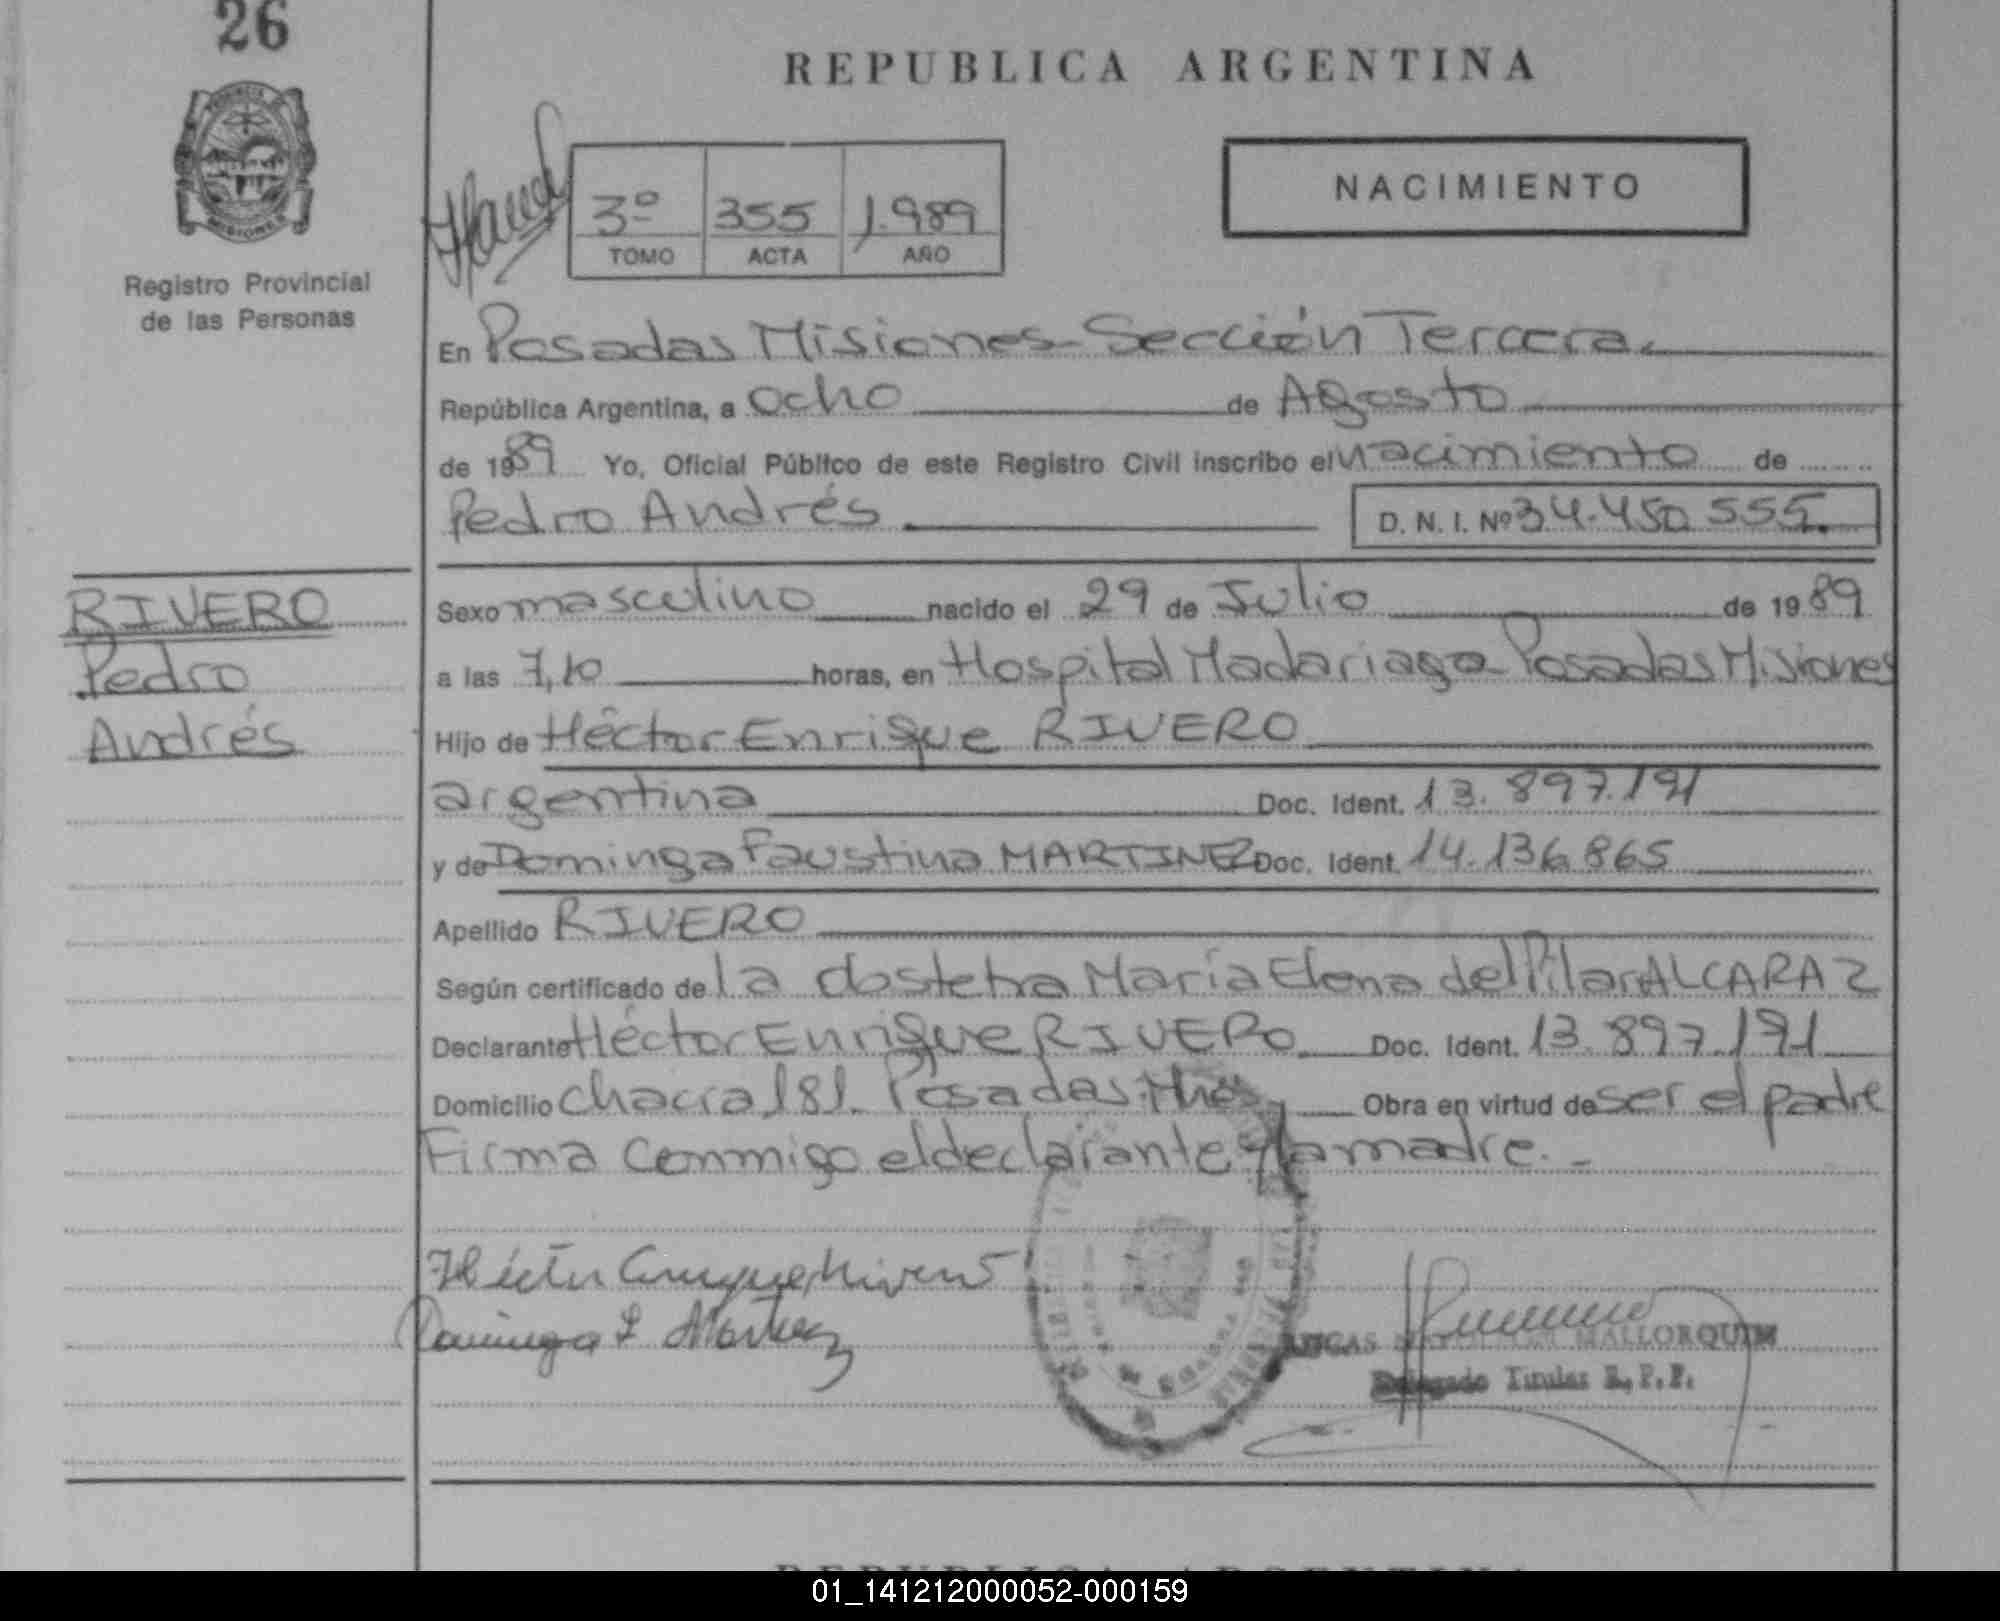 26
REPUBLICA ARGENTINA
NACIMIENTO
3º 355 1.989
TOMO ACTA AÑO
MISIONES
Registro Provincial
de las Personas
En Posadas Misiones - Sección Tercera.
República Argentina, a ocho de Agosto
de 1989 Yo, Oficial Público de este Registro Civil inscribo el nacimiento de
Pedro Andrés D. N. I. Nº 34.450.555.
RIVERO
Pedro
Andrés
Sexo masculino nacido el 29 de Julio de 1989
a las 7,10 horas, en Hospital Madariaga - Posadas Misiones
Hijo de Héctor Enrique RIVERO
argentina Doc. Ident. 13.897.191
y de Dominga Faustina MARTINEZ Doc. Ident. 14.136.865
Apellido RIVERO
Según certificado de la obstetra María Elena del Pilar ALCARAZ
Declarante Héctor Enrique RIVERO Doc. Ident. 13.897.191
Domicilio chacra 181. Posadas. Mnes Obra en virtud de ser el padre
Firma conmigo el declarante y la madre. -
Héctor Enrique Rivero
Dominga F. Martinez
MALLORQUIN
Delegado Titular R.P.P.
REPUBLICA ARGENTINA
01_141212000052-000159